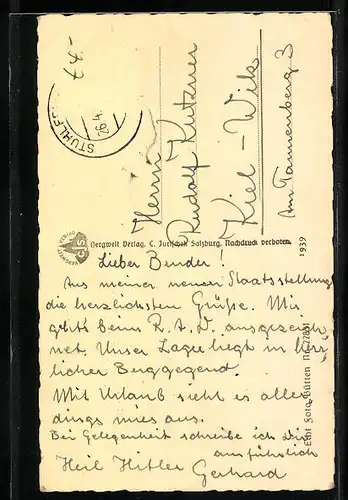 STUHLFE
26.4.
Herrn
Rudolf Kutzner
Kiel-Wik
Am Tannenberg 3
Bergwelt Verlag, C. Jurischek Salzburg. Nachdruck verboten.
1939
Lieber Bruder!
Aus meiner neuen Staatsstellung
die herzlichsten Grüße. Mir
geht's beim R.A.D. ausgezeich-
net. Unser Lager liegt in herr-
licher Berggegend.
Mit Urlaub sieht es aller-
dings mies aus.
Bei Gelegenheit schreibe ich Dir
ausführlich
Heil Hitler Gerhard
Echt Foto Bütten Nr.